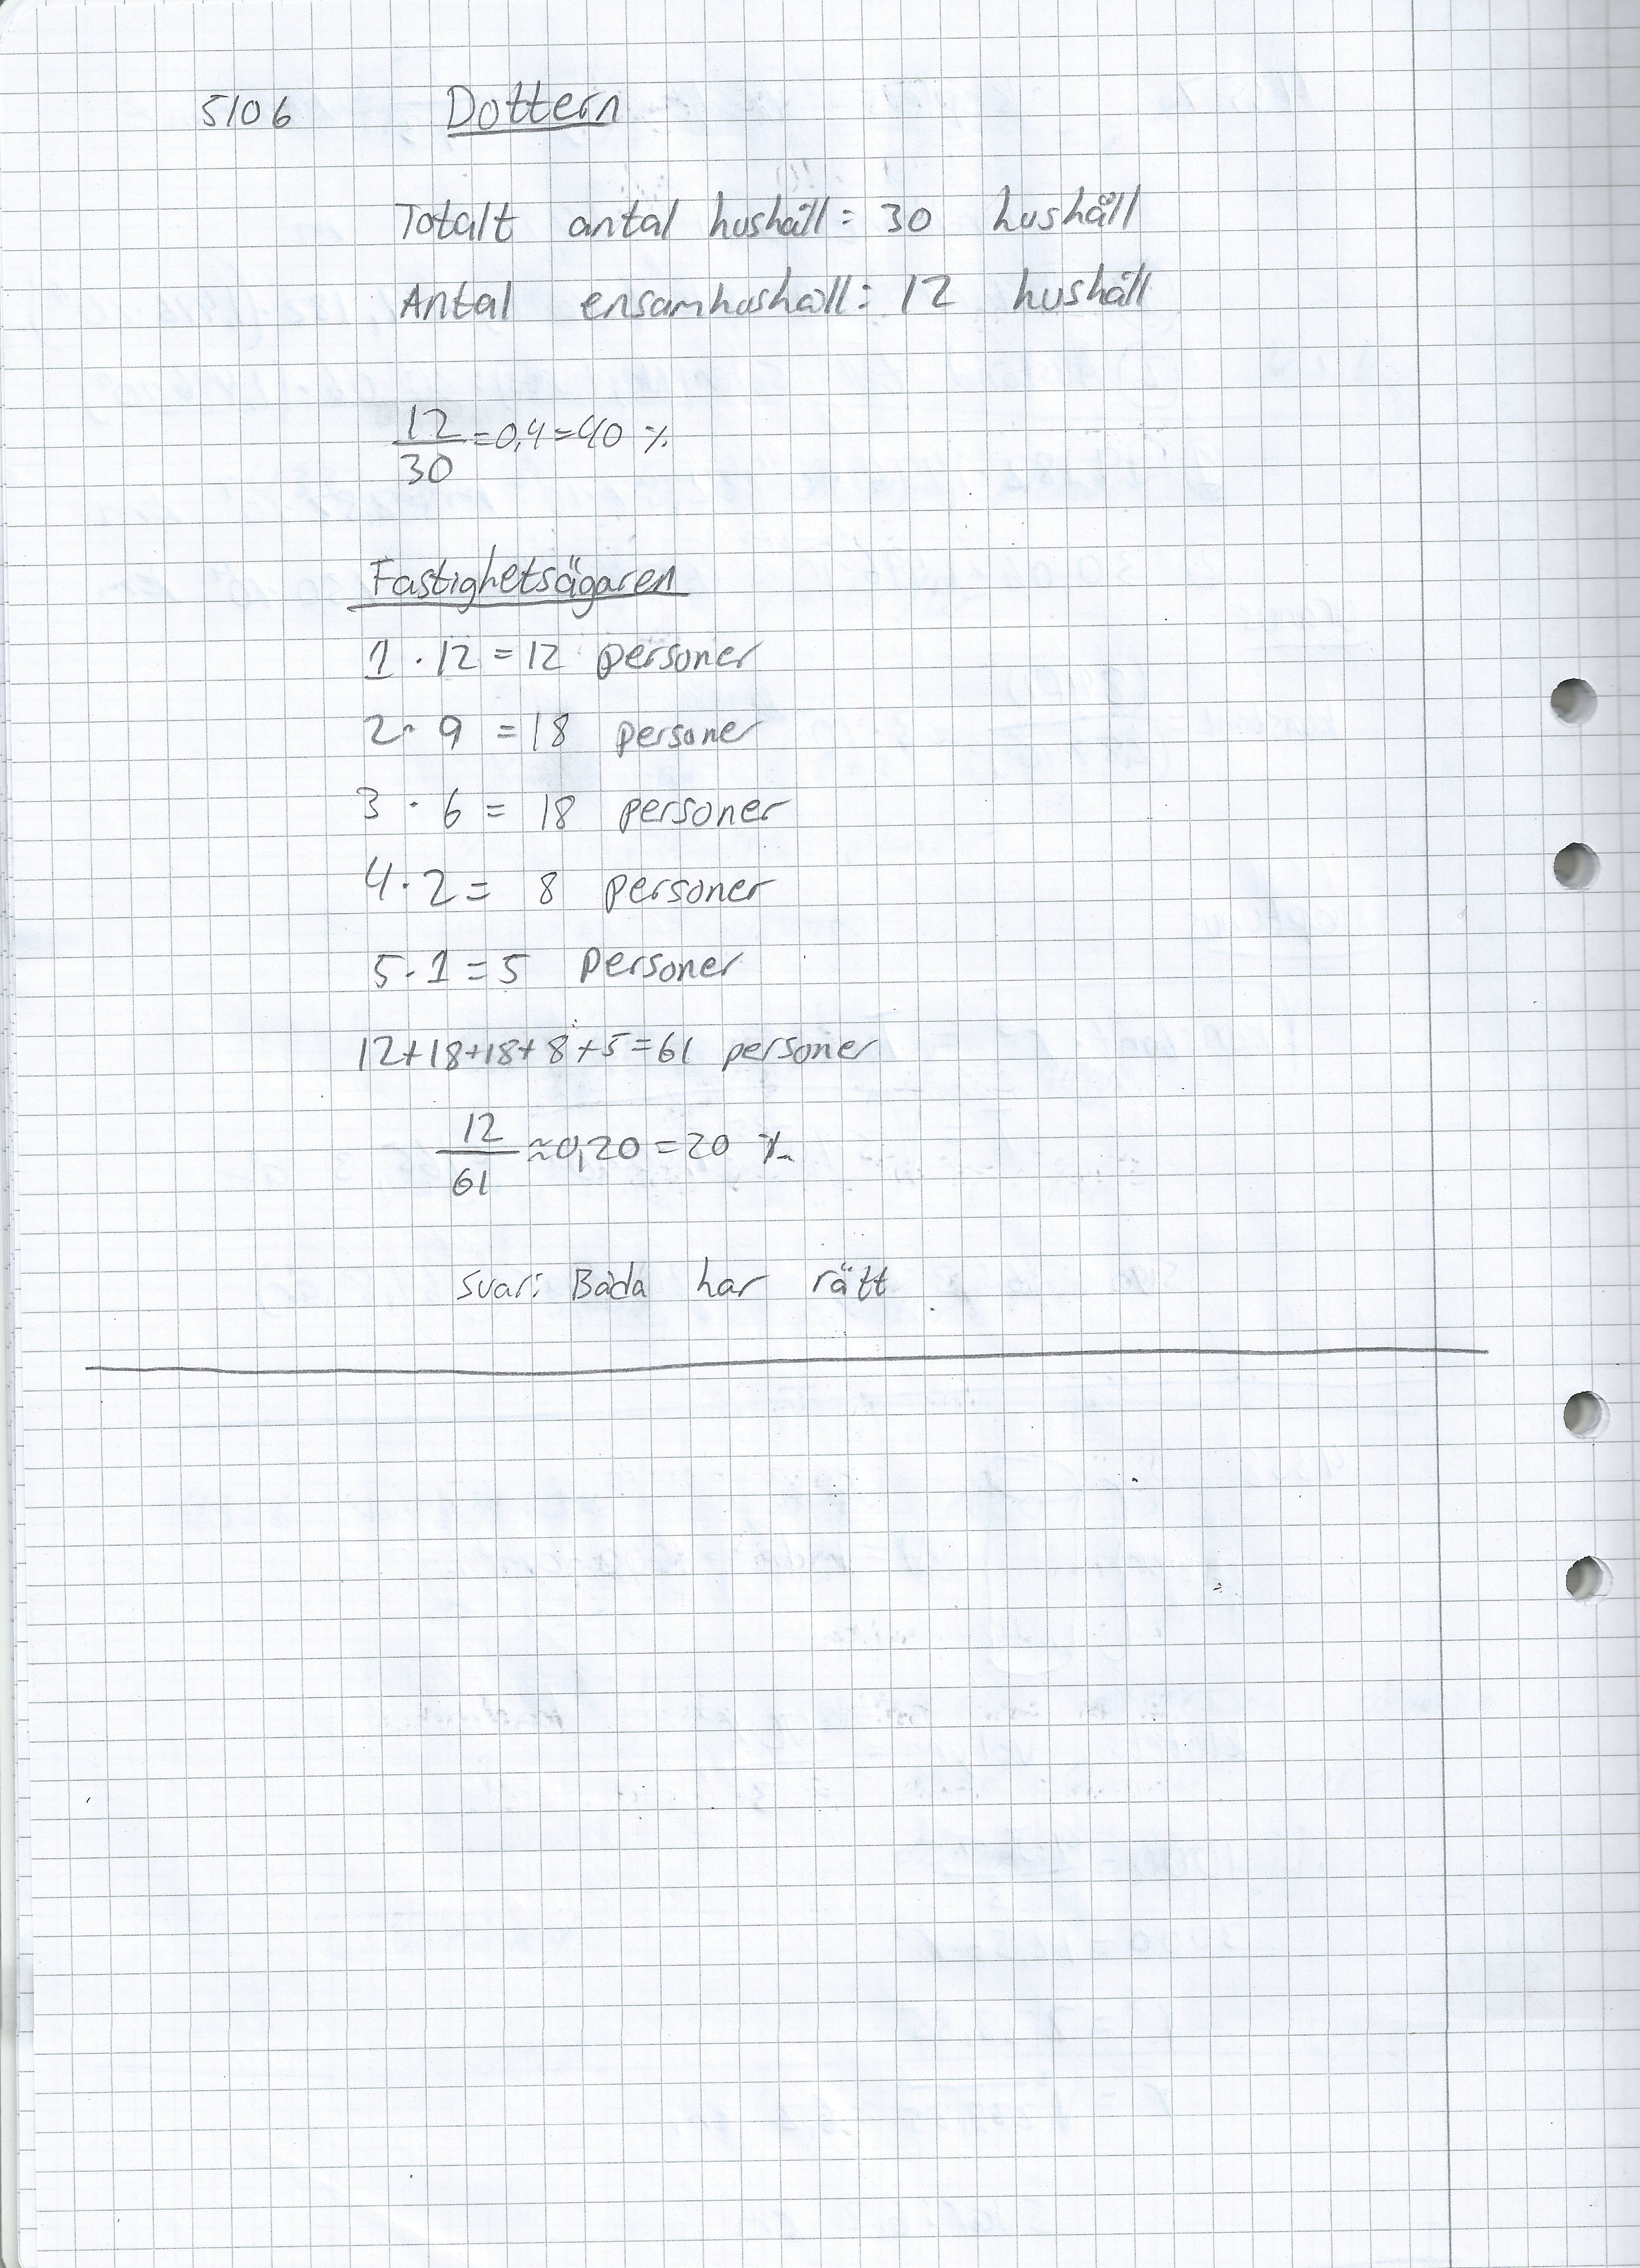 5106 Dottern
Totalt antal hushåll: 30 hushåll
Antal ensamhushåll: 12 hushåll
12/30 = 0,4 = 40 %
Fastighetsägaren
1 · 12 = 12 personer
2 · 9 = 18 personer
3 · 6 = 18 personer
4 · 2 = 8 personer
5 · 1 = 5 Personer
12+18+18+8+5=61 personer
12/61 ≈ 0,20 = 20 %
Svar: Båda har rätt